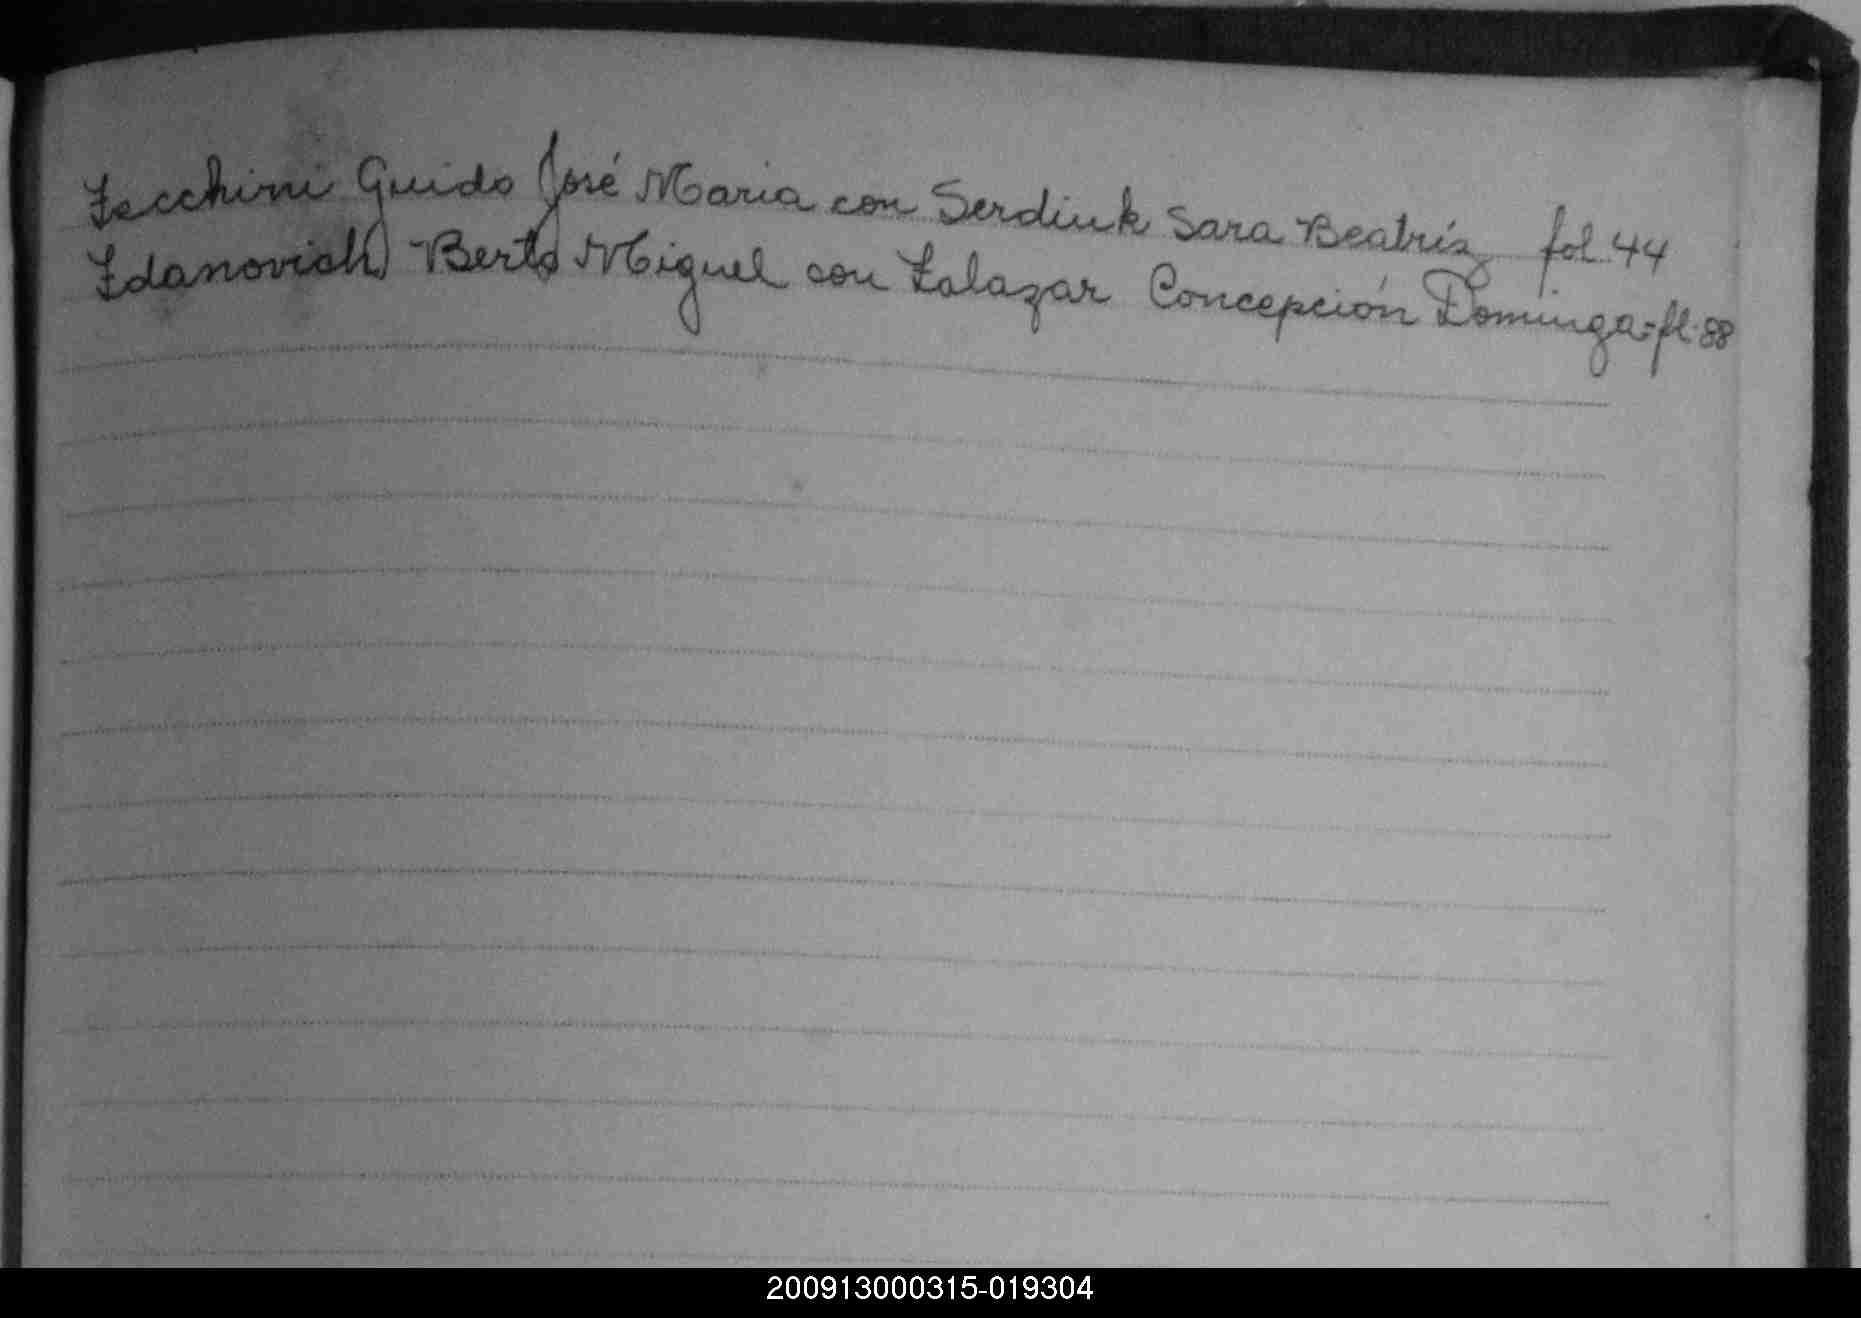 Zecchini Guido José Maria con Serdiuk Sara Beatríz fol. 44
Zdanovich Berto Miguel con Zalazar Concepción Dominga = fl. 88
200913000315-019304